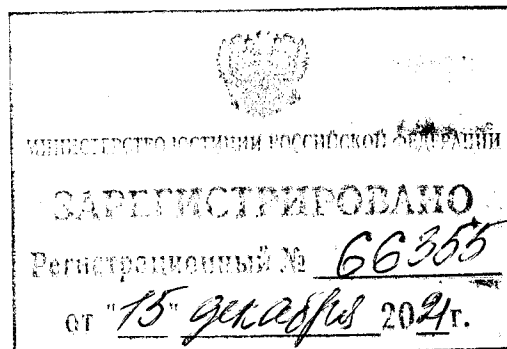 МИНИСТЕРСТВО ЮСТИЦИИ РОССИЙСКОЙ ФЕДЕРАЦИИ
ЗАРЕГИСТРИРОВАНО
Регистрационный № 66355
от "15" декабря 2021г.